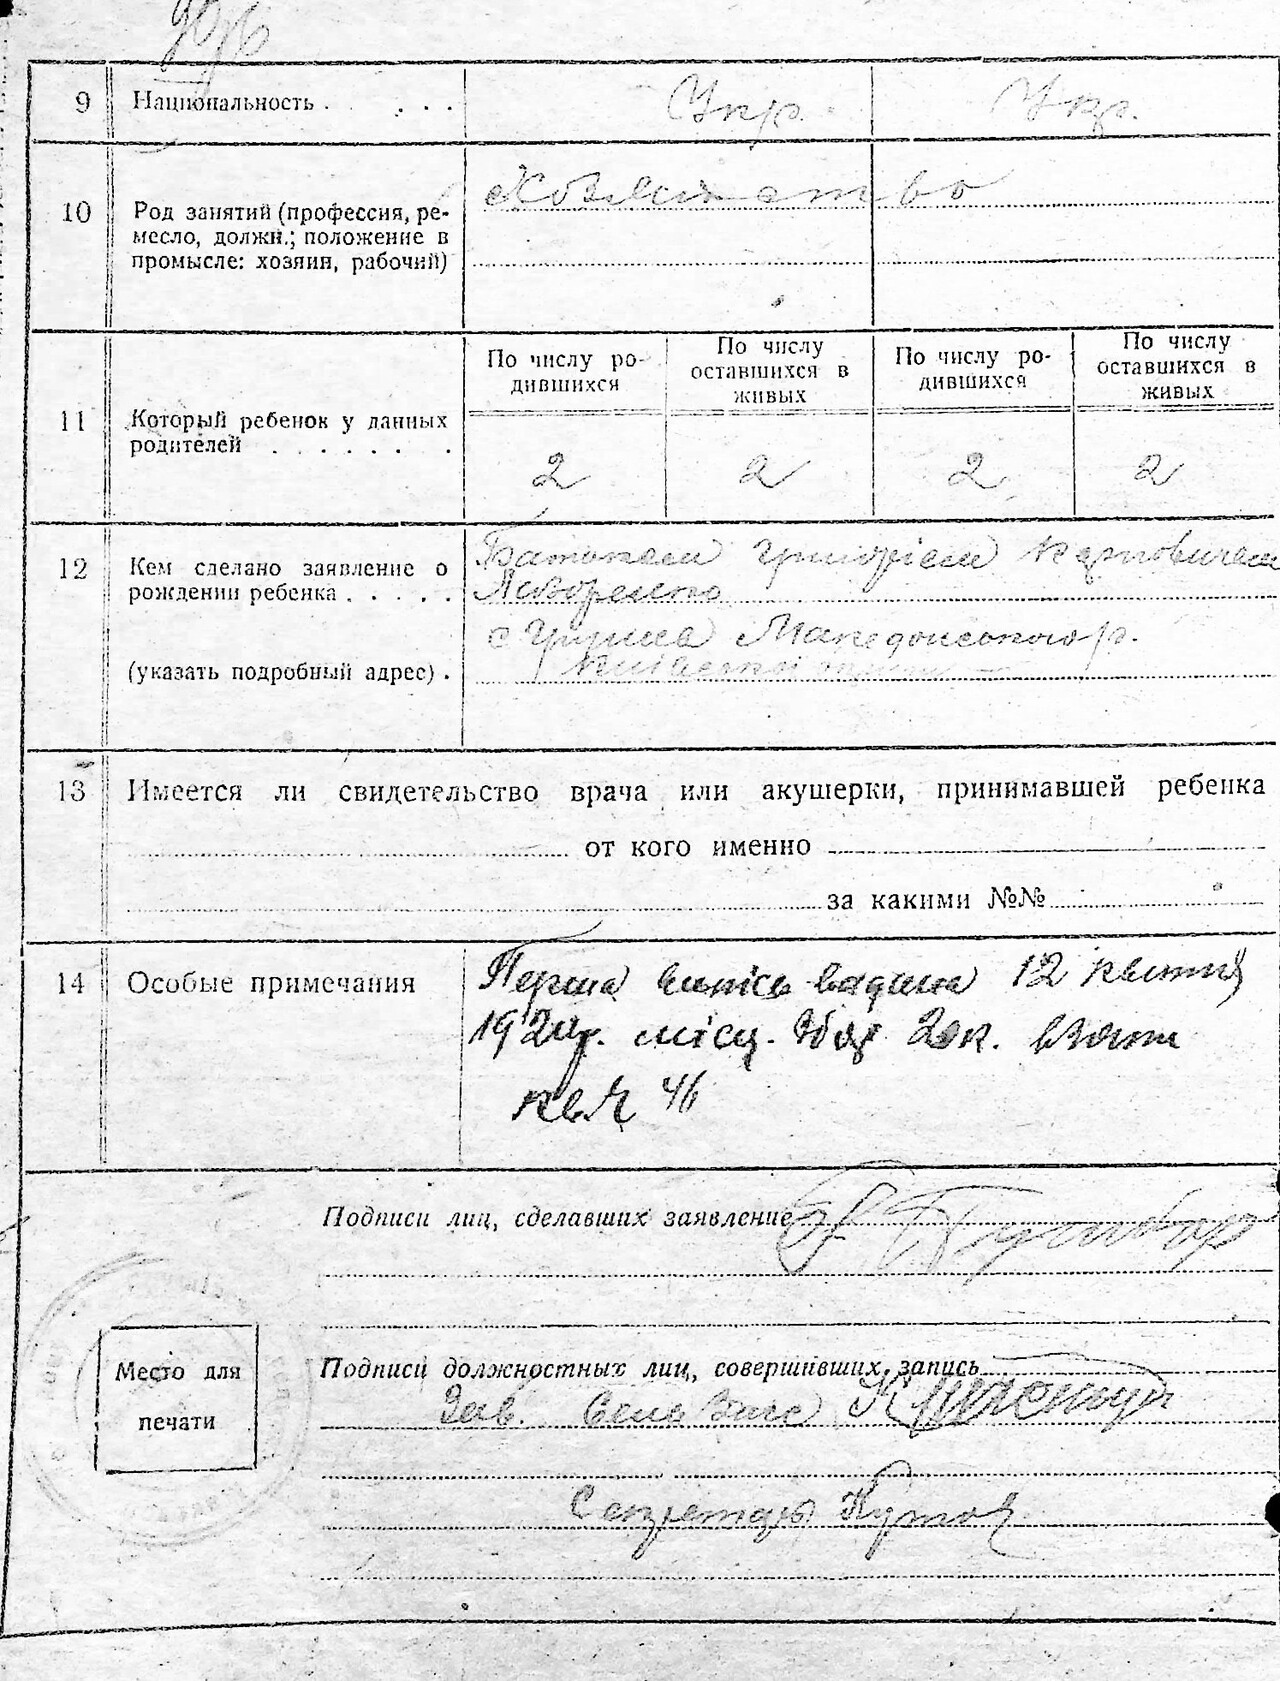 9 Национальность . . . . . Укр. Укр.
10 Род занятий (профессия, ре-
месло, должн.; положение в
промысле: хозяин, рабочий)
Хозяйство
11 Который ребенок у данных
родителей . . . . . . .
По числу ро-
дившихся
По числу
оставшихся в
живых
По числу ро-
дившихся
По числу
оставшихся в
живых
2 2 2 2
12 Кем сделано заявление о
рождении ребенка . . . . .
(указать подробный адрес) .
Батьком Григорієм Карповичем
Яворенко
с Македонського р.
13 Имеется ли свидетельство врача или акушерки, принимавшей ребенка
от кого именно
за какими №№
14 Особые примечания
Перша випись видана 12 квітня
1924р. місц. збір 20к. взято
кв. № 46
Подписи лиц, сделавших заявление
Место для
печати
Подписи должностных лиц, совершивших запись
Зав. Сель
Секретарь